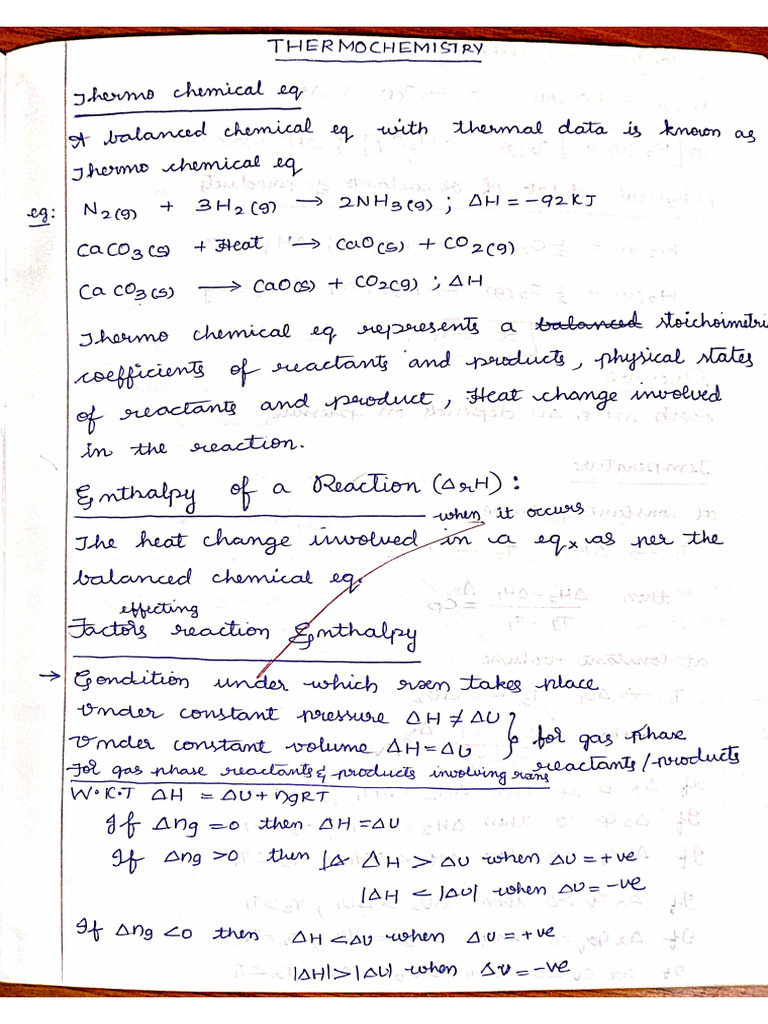 THERMOCHEMISTRY
Thermo chemical eq
A balanced chemical eq with thermal data is known as
Thermo chemical eq
eg: N₂(g) + 3H₂(g) → 2NH₃(g) ; ΔH = -92KJ
CaCO₃(s) + Heat → CaO(s) + CO₂(g)
CaCO₃(s) → CaO(s) + CO₂(g) ; ΔH
Thermo chemical eq represents a balanced stoichoimetri
coefficients of reactants and products, physical states
of reactants and product, Heat change involved
in the reaction.
Enthalpy of a Reaction (ΔrH) :
when it occurs
The heat change involved in a eq x as per the
balanced chemical eq.
effecting
Factors reaction Enthalpy
→ Condition under which rxen takes place
Under constant pressure ΔH ≠ ΔU
Under constant volume ΔH = ΔU } for gas phase
reactants/products
For gas phase reactants & products involving rxns
W.K.T ΔH = ΔU + ngRT
If Δng = 0 then ΔH = ΔU
If Δng >0 then |Δ ΔH > ΔU when ΔU = +ve
|ΔH < |ΔU| when ΔU = -ve
If Δng <0 then ΔH < ΔU when ΔU = +ve
|ΔH| > |ΔU| when ΔU = -ve